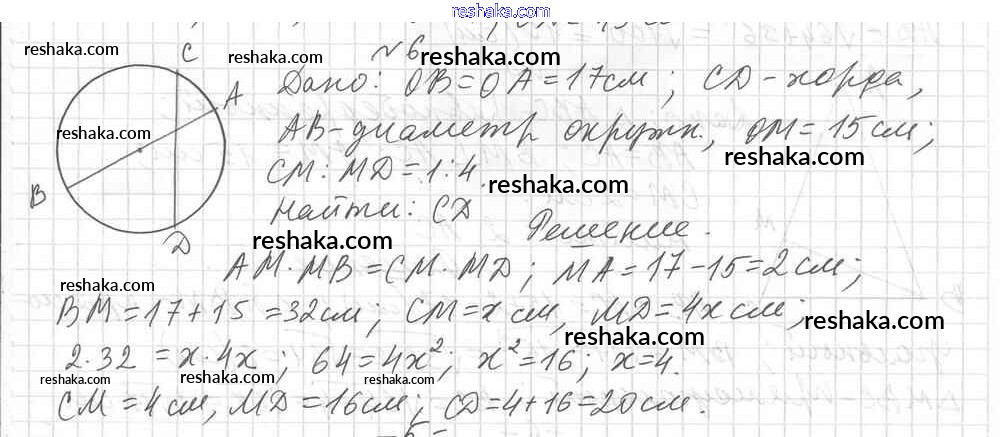 www.reshaka.com
reshaka.com
C
№6
reshaka.com
Дано: OB=OA=17см; CD-хорда,
A
reshaka.com
AB-диаметр окружн., OM=15см;
reshaka.com
CM:MD=1:4.
reshaka.com
B
Найти: CD
Решение.
D
reshaka.com
AM·MB=CM·MD; MA=17-15=2см;
BM=17+15=32см; CM=x см, MD=4x см;
reshaka.com
reshaka.com
2·32=x·4x; 64=4x²; x²=16; x=4.
reshaka.com
reshaka.com
reshaka.com
CM=4см, MD=16см; CD=4+16=20см.